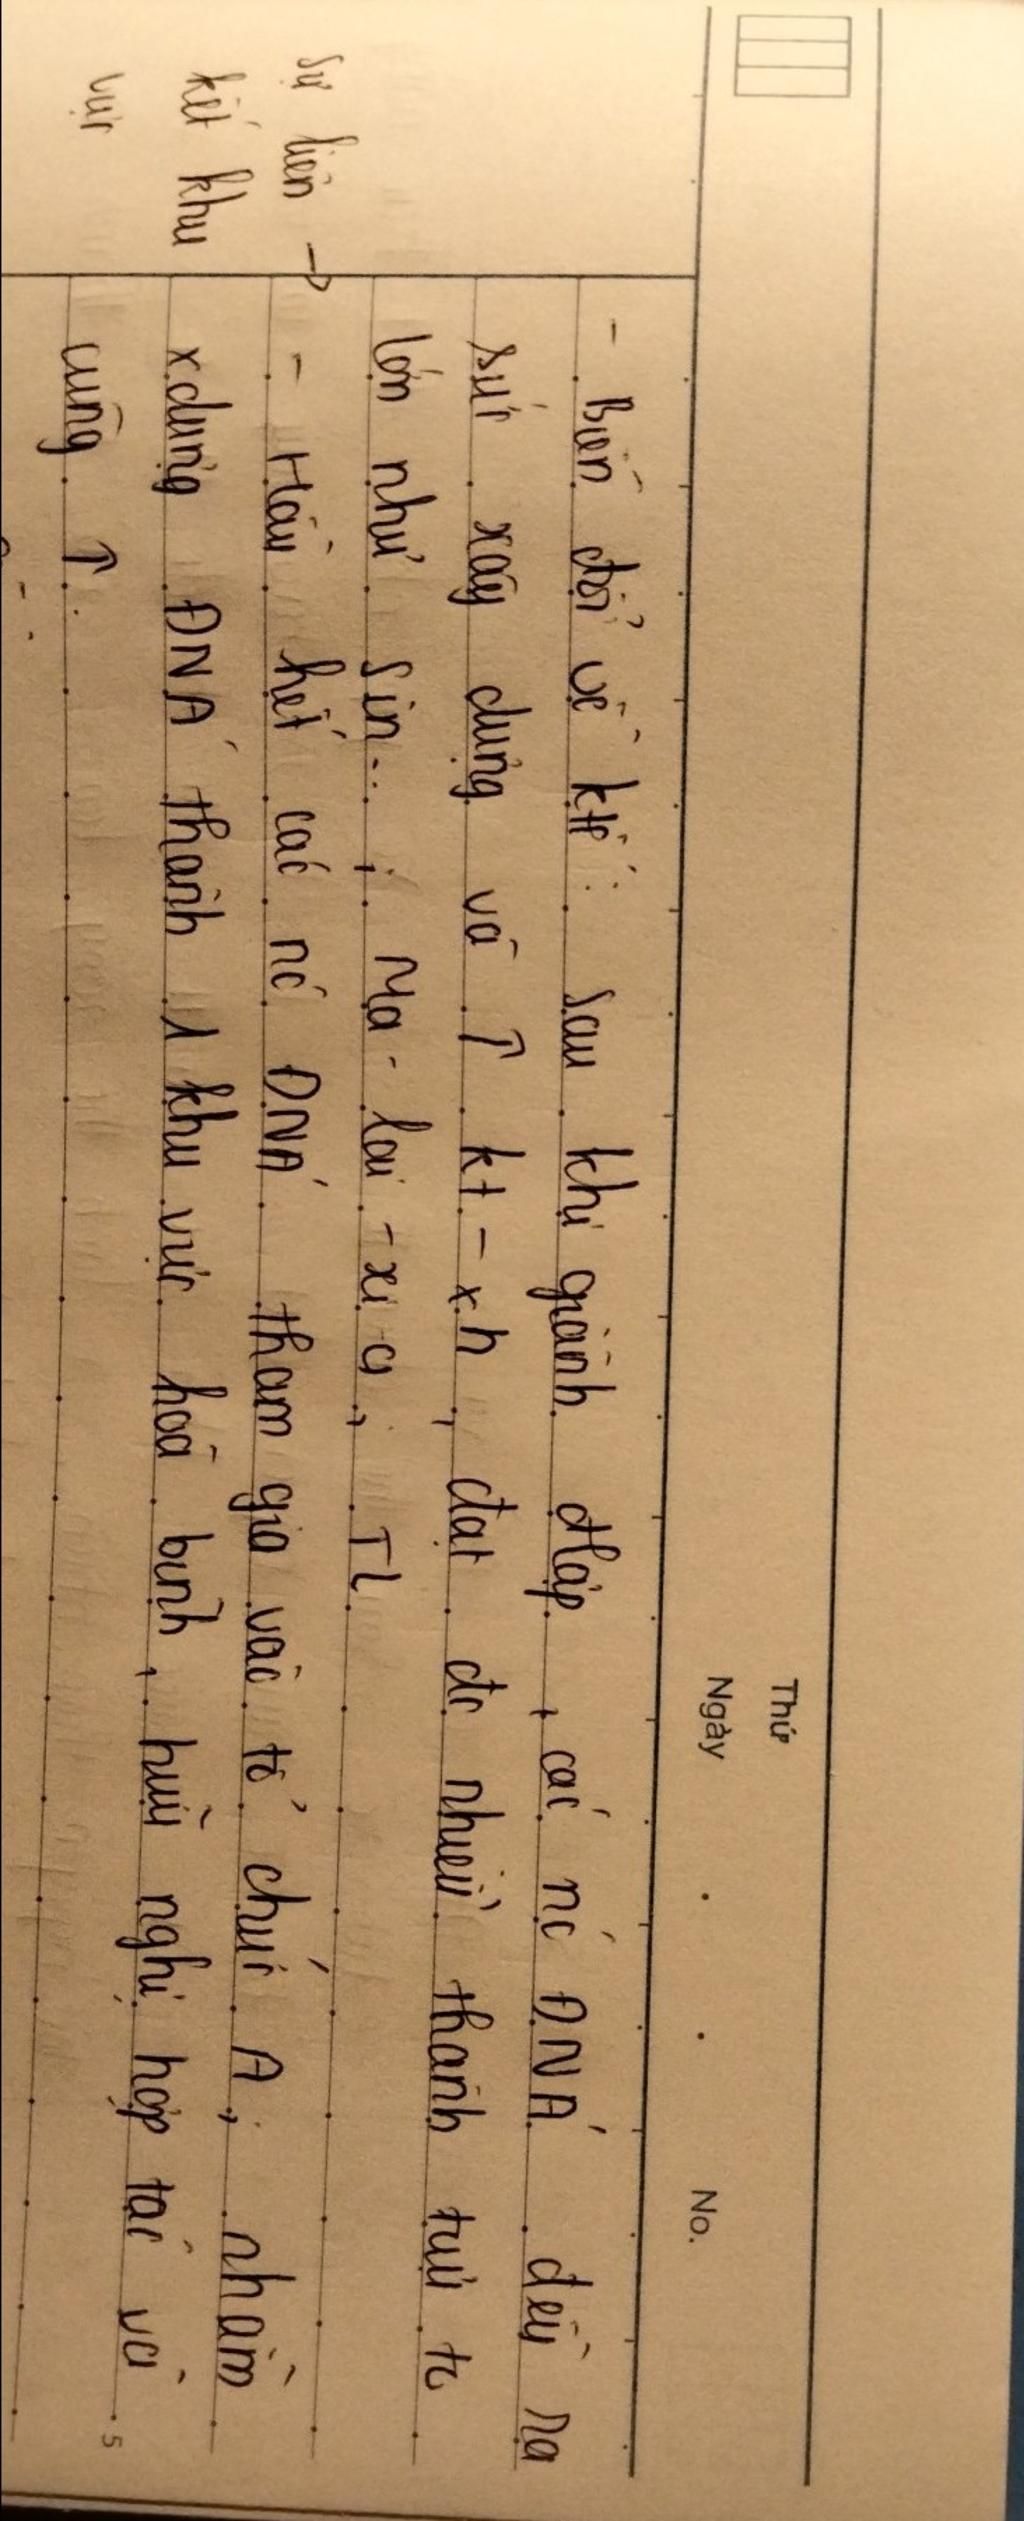 Thứ
Ngày . . No.
- Biến đổi về ktế: sau khi giành đlập, các nc ĐNÁ đều ra
sức xây dựng và ↑ kt-xh, đạt đc nhiều thành tựu to
lớn như Sin..., Ma-lai-xi-a, TL
sự liên →
kết khu
vực
- Hầu hết các nc ĐNÁ tham gia vào tổ chức A, nhằm
x.dựng ĐNÁ thành 1 khu vực hoà bình, hữu nghị hợp tác và
cùng ↑.
5